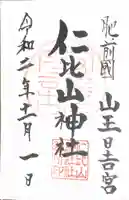 肥前國 山王日吉宮
仁比山神社
令和二年十一月一日